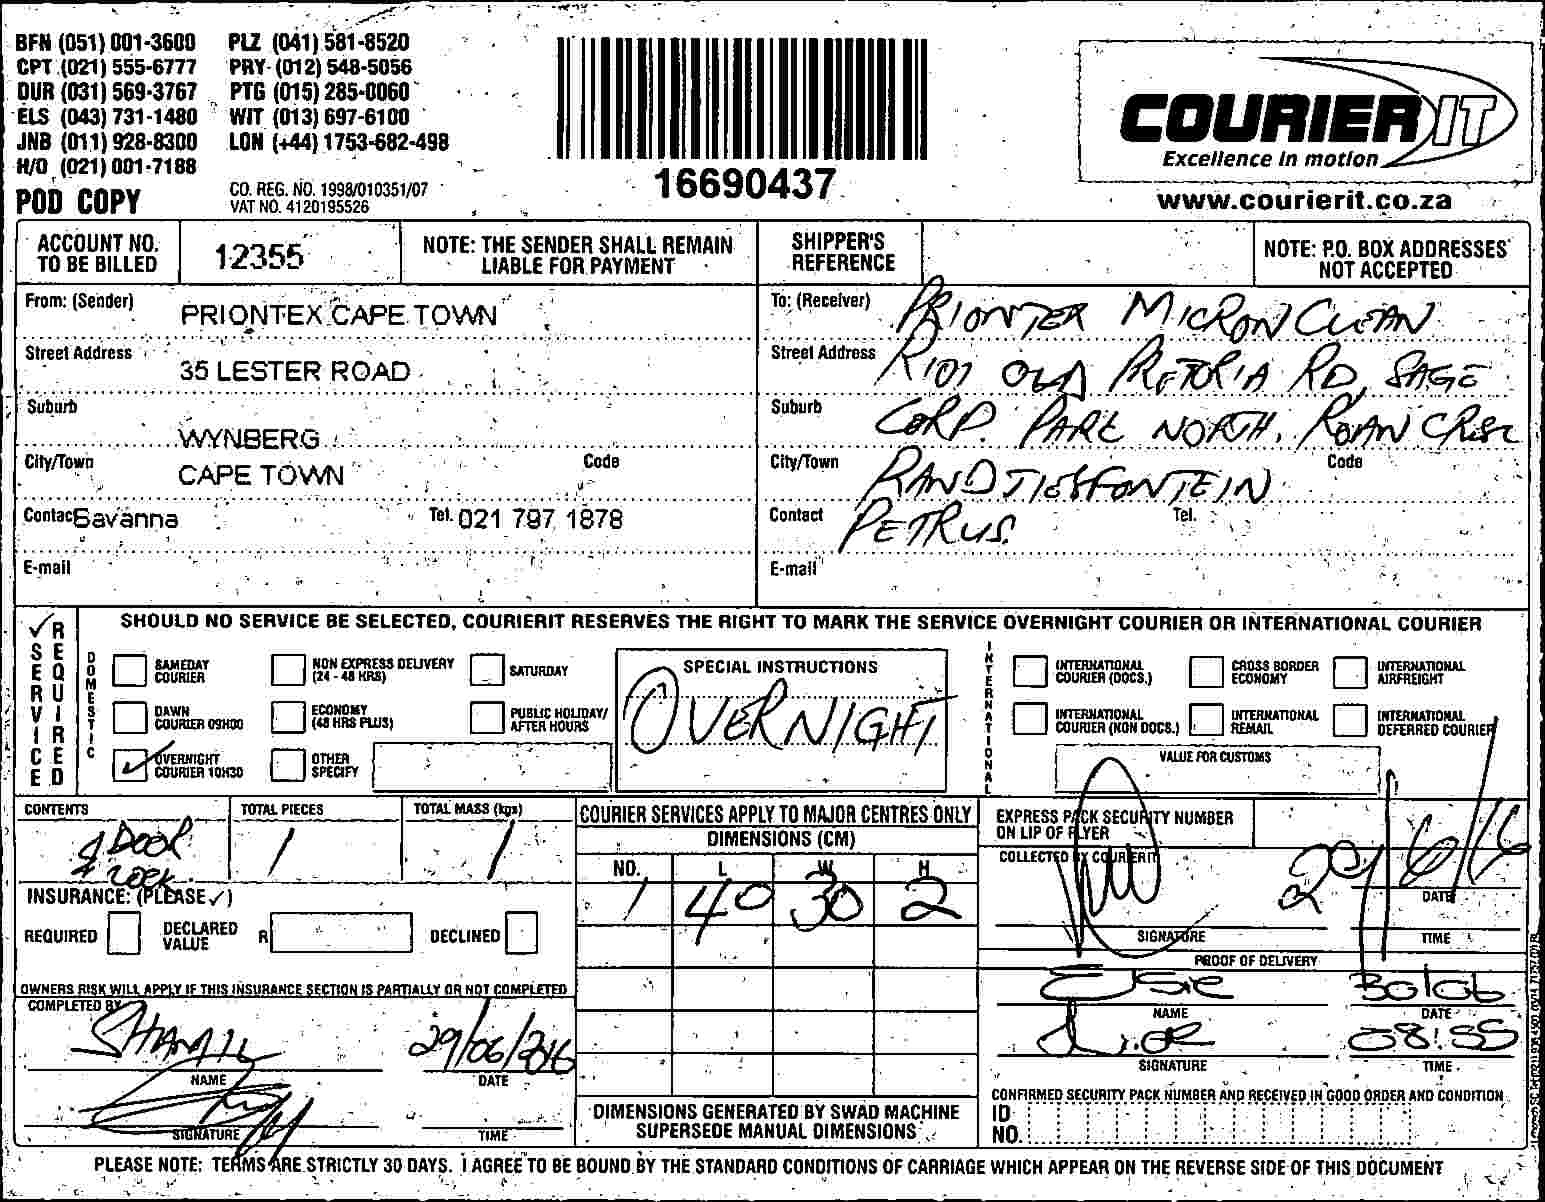 BFN (051) 001-3600 PLZ (041) 581-8520
CPT (021) 555-6777 PRY (012) 548-5056
DUR (031) 569-3767 PTG (015) 285-0060
ELS (043) 731-1480 WIT (013) 697-6100
JNB (011) 928-8300 LON (+44) 1753-682-498
H/O (021) 001-7188
POD COPY
CO. REG. NO. 1998/010351/07
VAT NO. 4120195526
16690437
COURIER IT
Excellence in motion
www.courierit.co.za
ACCOUNT NO. TO BE BILLED 12355
NOTE: THE SENDER SHALL REMAIN LIABLE FOR PAYMENT
SHIPPER'S REFERENCE
NOTE: P.O. BOX ADDRESSES NOT ACCEPTED
From: (Sender) PRIONTEX CAPE TOWN
Street Address 35 LESTER ROAD
Suburb WYNBERG
City/Town CAPE TOWN Code
Contact Savanna Tel. 021 797 1878
E-mail
To: (Receiver) PRIONTEX MICRONCLEAN
Street Address R101 OLD PRETORIA RD, SAGE
Suburb CORP. PARK NORTH, ROAN CRESC
City/Town RANDTJESFONTEIN Code
Contact PETRUS. Tel.
E-mail
✓ SERVICE REQUIRED
SHOULD NO SERVICE BE SELECTED, COURIERIT RESERVES THE RIGHT TO MARK THE SERVICE OVERNIGHT COURIER OR INTERNATIONAL COURIER
DOMESTIC
SAMEDAY COURIER
NON EXPRESS DELIVERY (24 - 48 HRS)
SATURDAY
DAWN COURIER 09H00
ECONOMY (48 HRS PLUS)
PUBLIC HOLIDAY/ AFTER HOURS
✓ OVERNIGHT COURIER 10H30
OTHER SPECIFY
SPECIAL INSTRUCTIONS
OVERNIGHT
INTERNATIONAL
INTERNATIONAL COURIER (DOCS.)
CROSS BORDER ECONOMY
INTERNATIONAL AIRFREIGHT
INTERNATIONAL COURIER (NON DOCS.)
INTERNATIONAL REMAIL
INTERNATIONAL DEFERRED COURIER
VALUE FOR CUSTOMS
CONTENTS
DOOR
TOTAL PIECES
1
TOTAL MASS (kgs)
1
INSURANCE: (PLEASE ✓)
REQUIRED DECLARED VALUE R DECLINED
OWNERS RISK WILL APPLY IF THIS INSURANCE SECTION IS PARTIALLY OR NOT COMPLETED
COMPLETED BY
SHAMIL 29/06/2016
NAME DATE
SIGNATURE TIME
COURIER SERVICES APPLY TO MAJOR CENTRES ONLY
DIMENSIONS (CM)
NO. L W H
1 40 30 2
DIMENSIONS GENERATED BY SWAD MACHINE
SUPERSEDE MANUAL DIMENSIONS
EXPRESS PACK SECURITY NUMBER
ON LIP OF FLYER
COLLECTED BY COURIERIT
29/6/16
DATE
SIGNATURE TIME
PROOF OF DELIVERY
Elsie 30/06
NAME DATE
08:55
SIGNATURE TIME
CONFIRMED SECURITY PACK NUMBER AND RECEIVED IN GOOD ORDER AND CONDITION
ID NO.
PLEASE NOTE: TERMS ARE STRICTLY 30 DAYS. I AGREE TO BE BOUND BY THE STANDARD CONDITIONS OF CARRIAGE WHICH APPEAR ON THE REVERSE SIDE OF THIS DOCUMENT